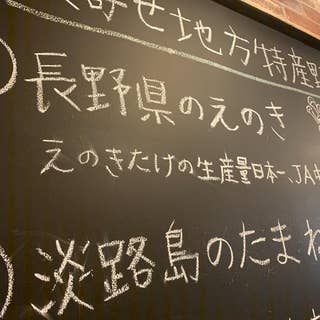 寄せ地方特産野
長野県のえのき
えのきたけの生産量日本一、JA
淡路島のたまね